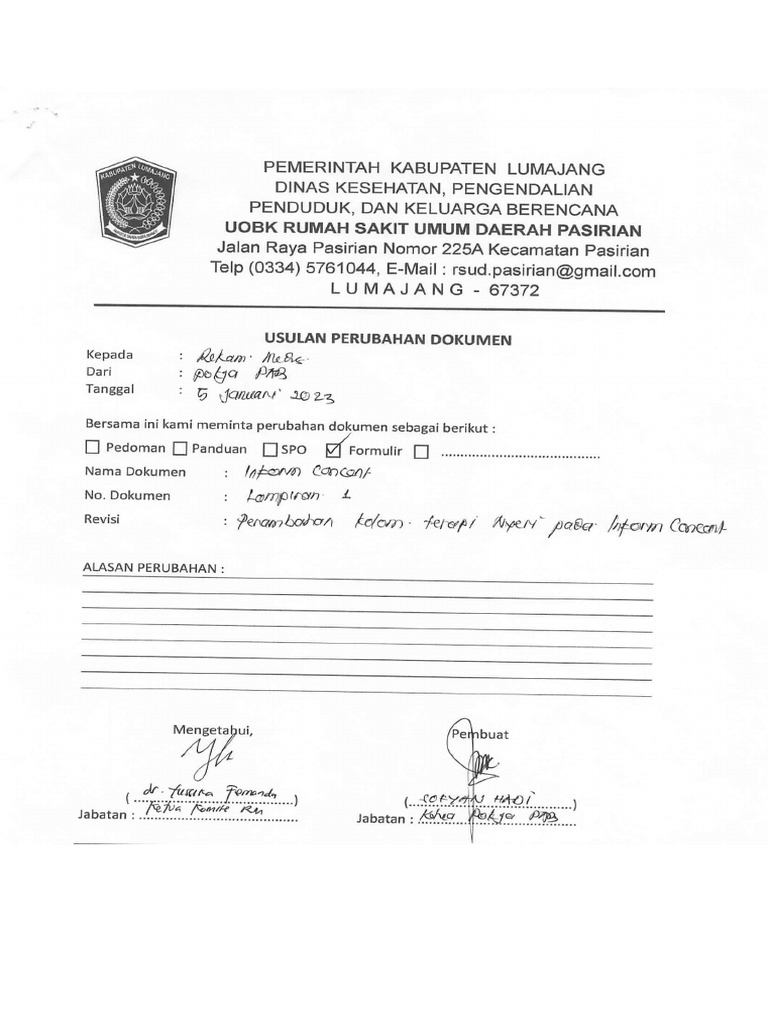 KABUPATEN LUMAJANG
PEMERINTAH KABUPATEN LUMAJANG
DINAS KESEHATAN, PENGENDALIAN
PENDUDUK, DAN KELUARGA BERENCANA
UOBK RUMAH SAKIT UMUM DAERAH PASIRIAN
Jalan Raya Pasirian Nomor 225A Kecamatan Pasirian
Telp (0334) 5761044, E-Mail : rsud.pasirian@gmail.com
LUMAJANG - 67372
USULAN PERUBAHAN DOKUMEN
Kepada : Rekam Medic
Dari : pokja PAB
Tanggal : 5 Januari 2023
Bersama ini kami meminta perubahan dokumen sebagai berikut :
Pedoman Panduan SPO Formulir ........................................
Nama Dokumen : Inform Concent
No. Dokumen : Lampiran 1
Revisi : Penambahan kolom terapi Nyeri pada Inform Concent
ALASAN PERUBAHAN :
Mengetahui,
Pembuat
( dr. )
( SOFYAN HADI )
Jabatan : Ketua Komite RM
Jabatan : Ketua Pokja PAB